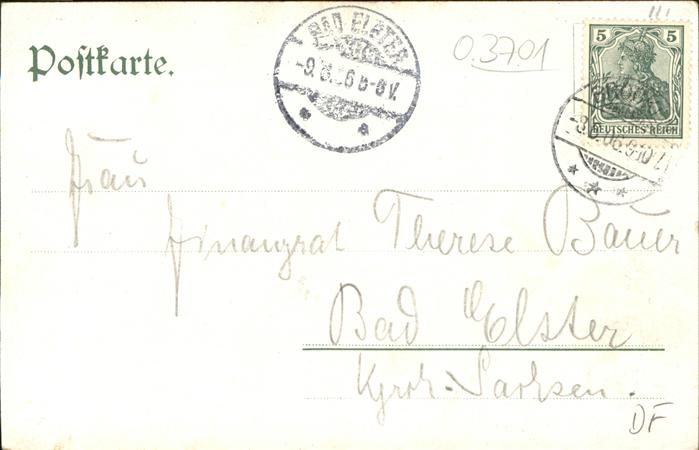 Postkarte.
BAD ELSTER
-9. 8. 06 5-6 V.
0.3701
5 5
DEUTSCHES REICH
8.8.06.9-10
Frau
Finanzrat Therese Bauer
Bad Elster
Kgrch: Sachsen.
DF